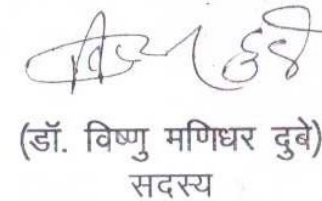 (डॉ. विष्णु मणिधर दुबे)
सदस्य